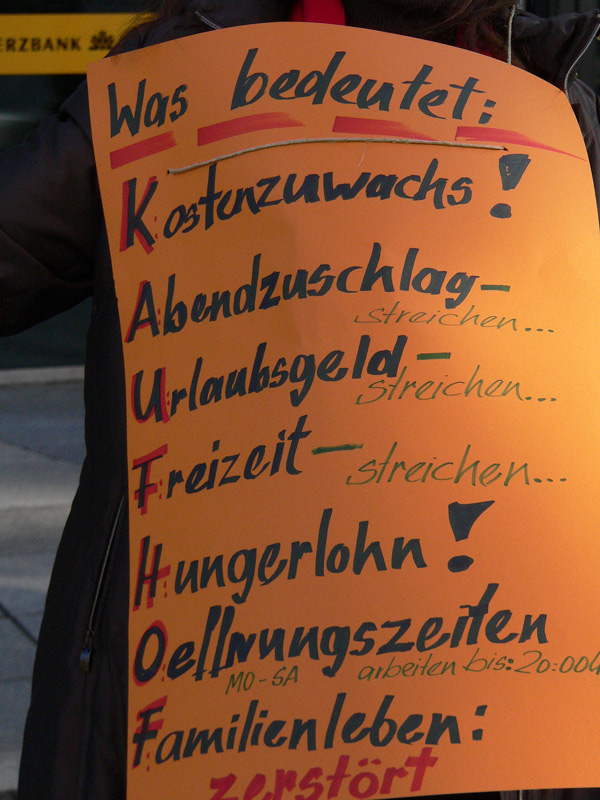 ERZBANK
Was bedeutet:
Kostenzuwachs!
Abendzuschlag-
streichen...
Urlaubsgeld-
streichen...
Freizeit-
streichen...
Hungerlohn!
Oeffnungszeiten
MO-SA arbeiten bis: 20:00
Familienleben:
zerstört